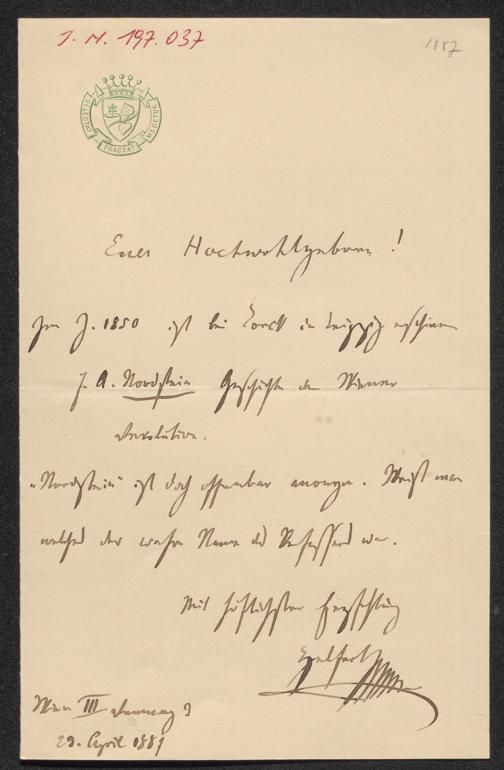 J. N. 197.037
1887
DELECTAT FRAGRAT MEDETUR
Euer Hochwohlgeboren!
Im J. 1850 ist bei Lorck in Leipzig erschienen
J. A. Nordstein Geschichte der Wiener
Revolution.
„Nordstein" ist doch offenbar anonym. Weiß man
welches der wahre Name des Verfassers war.
Mit höflichster Hochachtung
Helfert
Wien III
29. April 1887